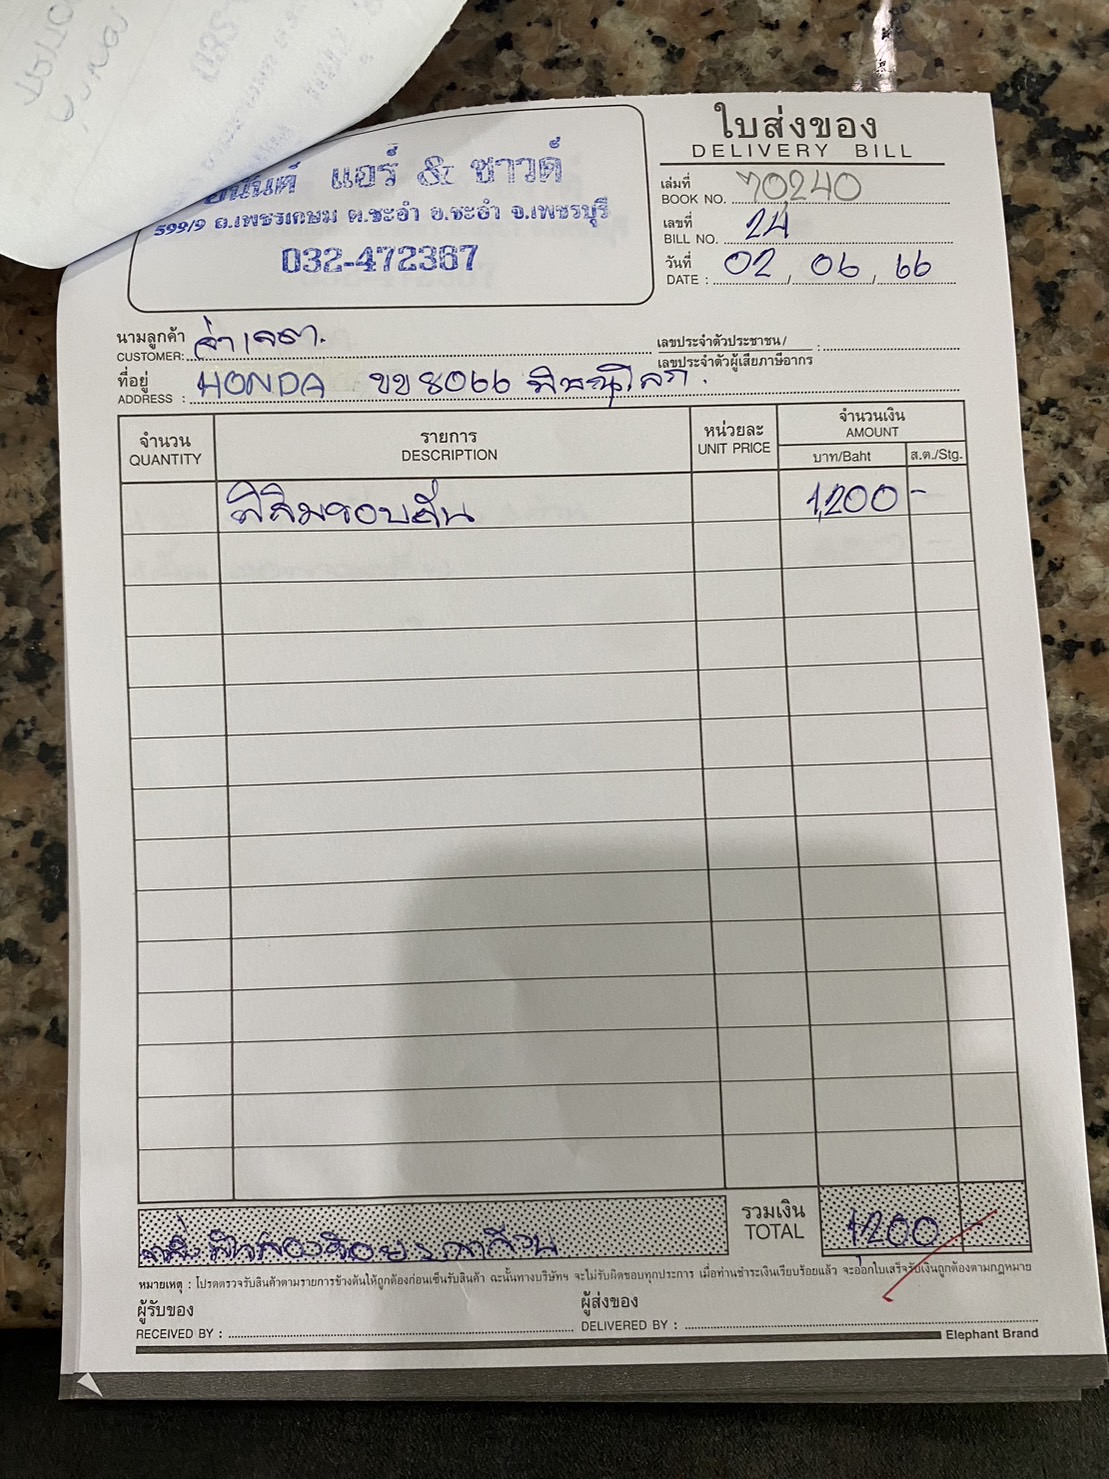 ใบส่งของ
DELIVERY BILL
แอร์ & ซาวด์
599/9 ถ.เพชรเกษม ต.ชะอำ อ.ชะอำ จ.เพชรบุรี
032-472367
เล่มที่
BOOK NO. 70240
เลขที่
BILL NO. 24
วันที่
DATE : 02 / 06 / 66
นามลูกค้า
CUSTOMER:
เลขประจำตัวประชาชน/
เลขประจำตัวผู้เสียภาษีอากร :
ที่อยู่
ADDRESS : HONDA ขข 8066 พิษณุโลก.
จำนวน
QUANTITY
รายการ
DESCRIPTION
หน่วยละ
UNIT PRICE
จำนวนเงิน
AMOUNT
บาท/Baht
ส.ต./Stg.
ฟิล์มรอบคัน 1,200 -
หนึ่งพันสองร้อยบาทถ้วน
รวมเงิน
TOTAL
1,200
หมายเหตุ : โปรดตรวจรับสินค้าตามรายการข้างต้นให้ถูกต้องก่อนเซ็นรับสินค้า ฉะนั้นทางบริษัทฯ จะไม่รับผิดชอบทุกประการ เมื่อท่านชำระเงินเรียบร้อยแล้ว จะออกใบเสร็จรับเงินถูกต้องตามกฎหมาย
ผู้รับของ
RECEIVED BY :
ผู้ส่งของ
DELIVERED BY :
Elephant Brand